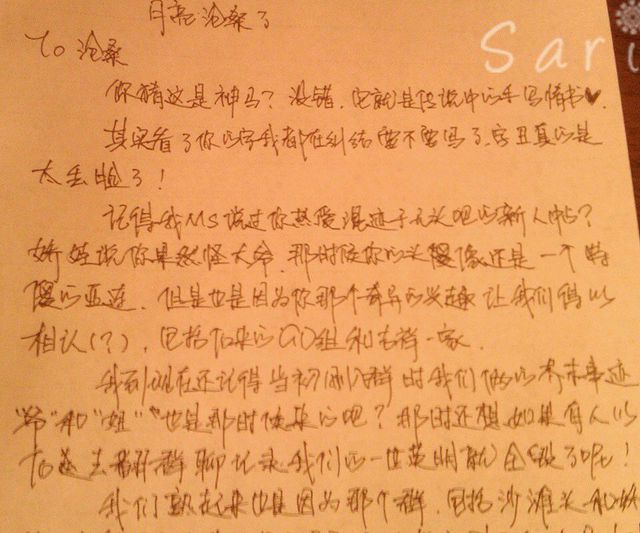 月亮沧桑了
Sari
To 沧桑
你猜这是神马？没错，它就是传说中的手写情书♥.
其实看了你的字我都在纠结要不要写了，字丑真的是
太丢脸了！
记得我MS说过你热爱混迹于无头吧的新人帖？
娇娃说你果然怪大爷，那时候你的头像还是一个特
傻的亚连，但是也是因为你那个奇异的兴趣让我们得以
相认(？)，包括后来的GO组和吉祥一家.
我到现在还记得当初刚入群时我们俩的养未事迹
和"妞"也是那时候来的吧？那时还想如果有人
去翻群聊记录我们的一世英明就全毁了呢！
我们 起来也是因为那个群，包括沙滩头